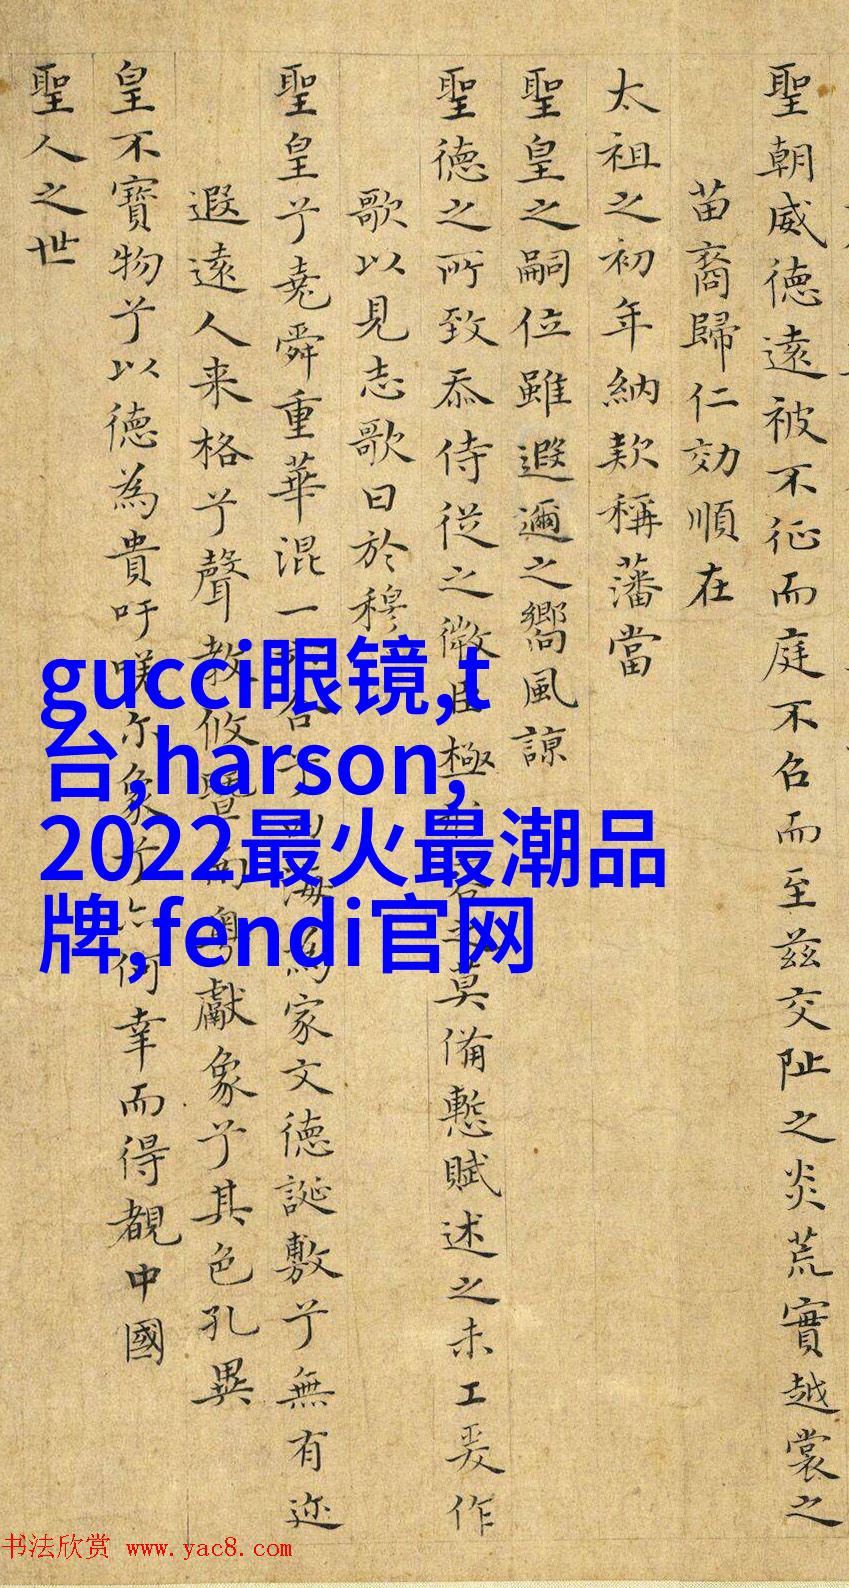 聖朝威德遠被不征而庭不召而至茲交阯之炎荒實越裳之
苗裔歸仁効順在
太祖之初年納欵稱藩當
聖皇之嗣位雖遐邇之嚮風諒
聖德之所致忝侍從之微臣極
莫備慙賦述之未工爰作
歌以見志歌曰於穆
聖皇兮堯舜重華混一
海為家文德誕敷兮無有迩
遐遠人来格兮聲教攸暨
粵獻象兮其色孔異
皇不寶物兮以德為貴吁嗟
象兮
何幸而得覩中國
聖人之世
gucci眼镜,t
台,harson,
2022最火最潮品
牌,fendi官网
书法欣赏 www.yac8.com